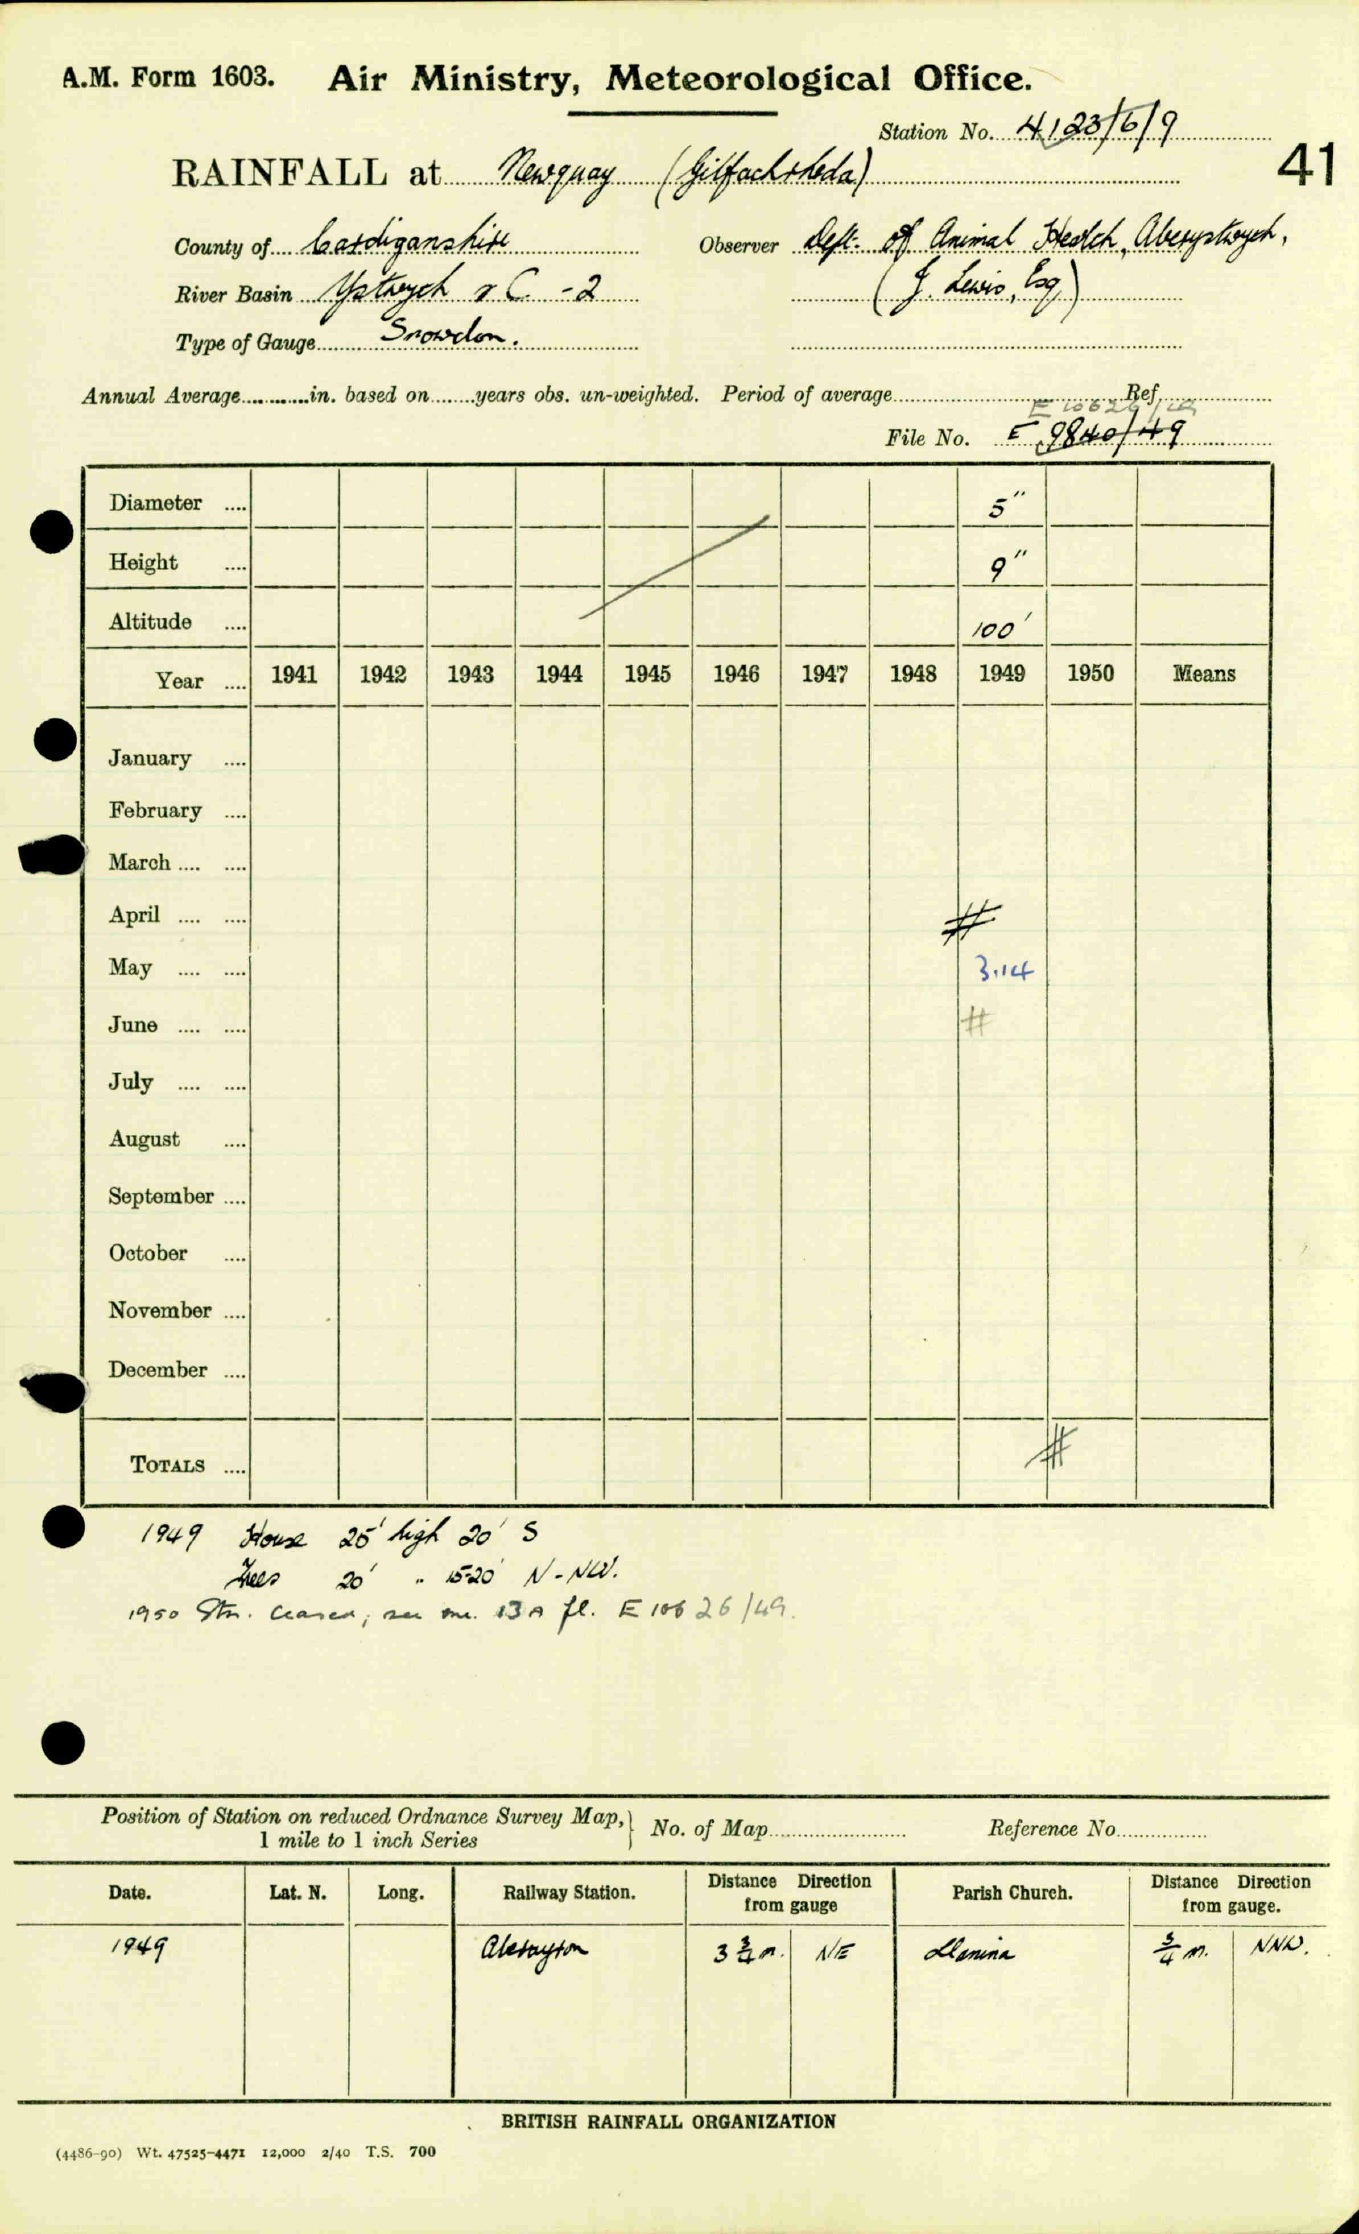 A.M. Form 1603. Air Ministry, Meteorological Office.
Station No. 4123/6/9
41
RAINFALL at Newquay (Gilfachrheda)
County of Cardiganshire Observer Dept. of Animal Health, Aberystwyth,
River Basin Ystwyth & C. -2 (J. Lewis, Esq)
Type of Gauge Snowdon.
Annual Average in. based on years obs. un-weighted. Period of average Ref
E 10626/49
File No. E 9840/49
Diameter 5"
Height 9"
Altitude 100'
Year 1941 1942 1943 1944 1945 1946 1947 1948 1949 1950 Means
January
February
March
April #
May 3.14
June #
July
August
September
October
November
December
TOTALS #
1949 House 25' high 20' S
Trees 20' " 15-20' N-NW.
1950 Stn. ceased; see me. 13A fl. E 10626/49.
Position of Station on reduced Ordnance Survey Map, 1 mile to 1 inch Series } No. of Map Reference No.
Date. Lat. N. Long. Railway Station. Distance Direction from gauge Parish Church. Distance Direction from gauge.
1949 Aberayron 3 3/4 m. NE Llanina 3/4 m. NNW.
BRITISH RAINFALL ORGANIZATION
(4486-90) Wt. 47525-4471 12,000 2/40 T.S. 700